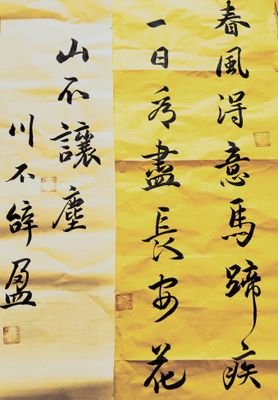 春風得意馬蹄疾
一日看盡長安花
山不讓塵
川不辭盈